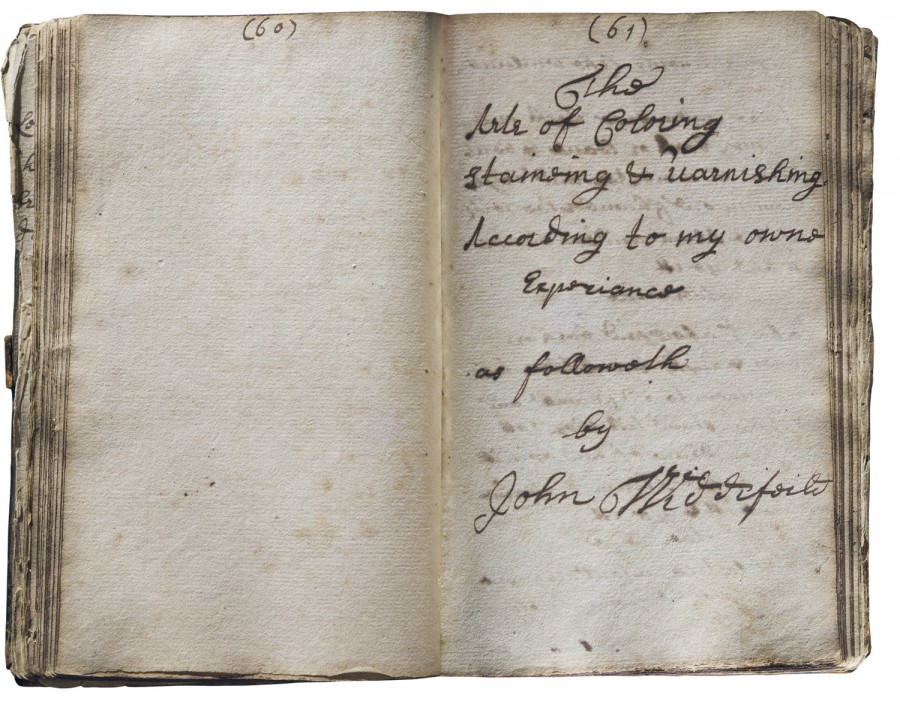 (60)
(61)
The
Arte of Coloring
staineing & varnishing
According to my owne
Experiance
as followeth
by
John